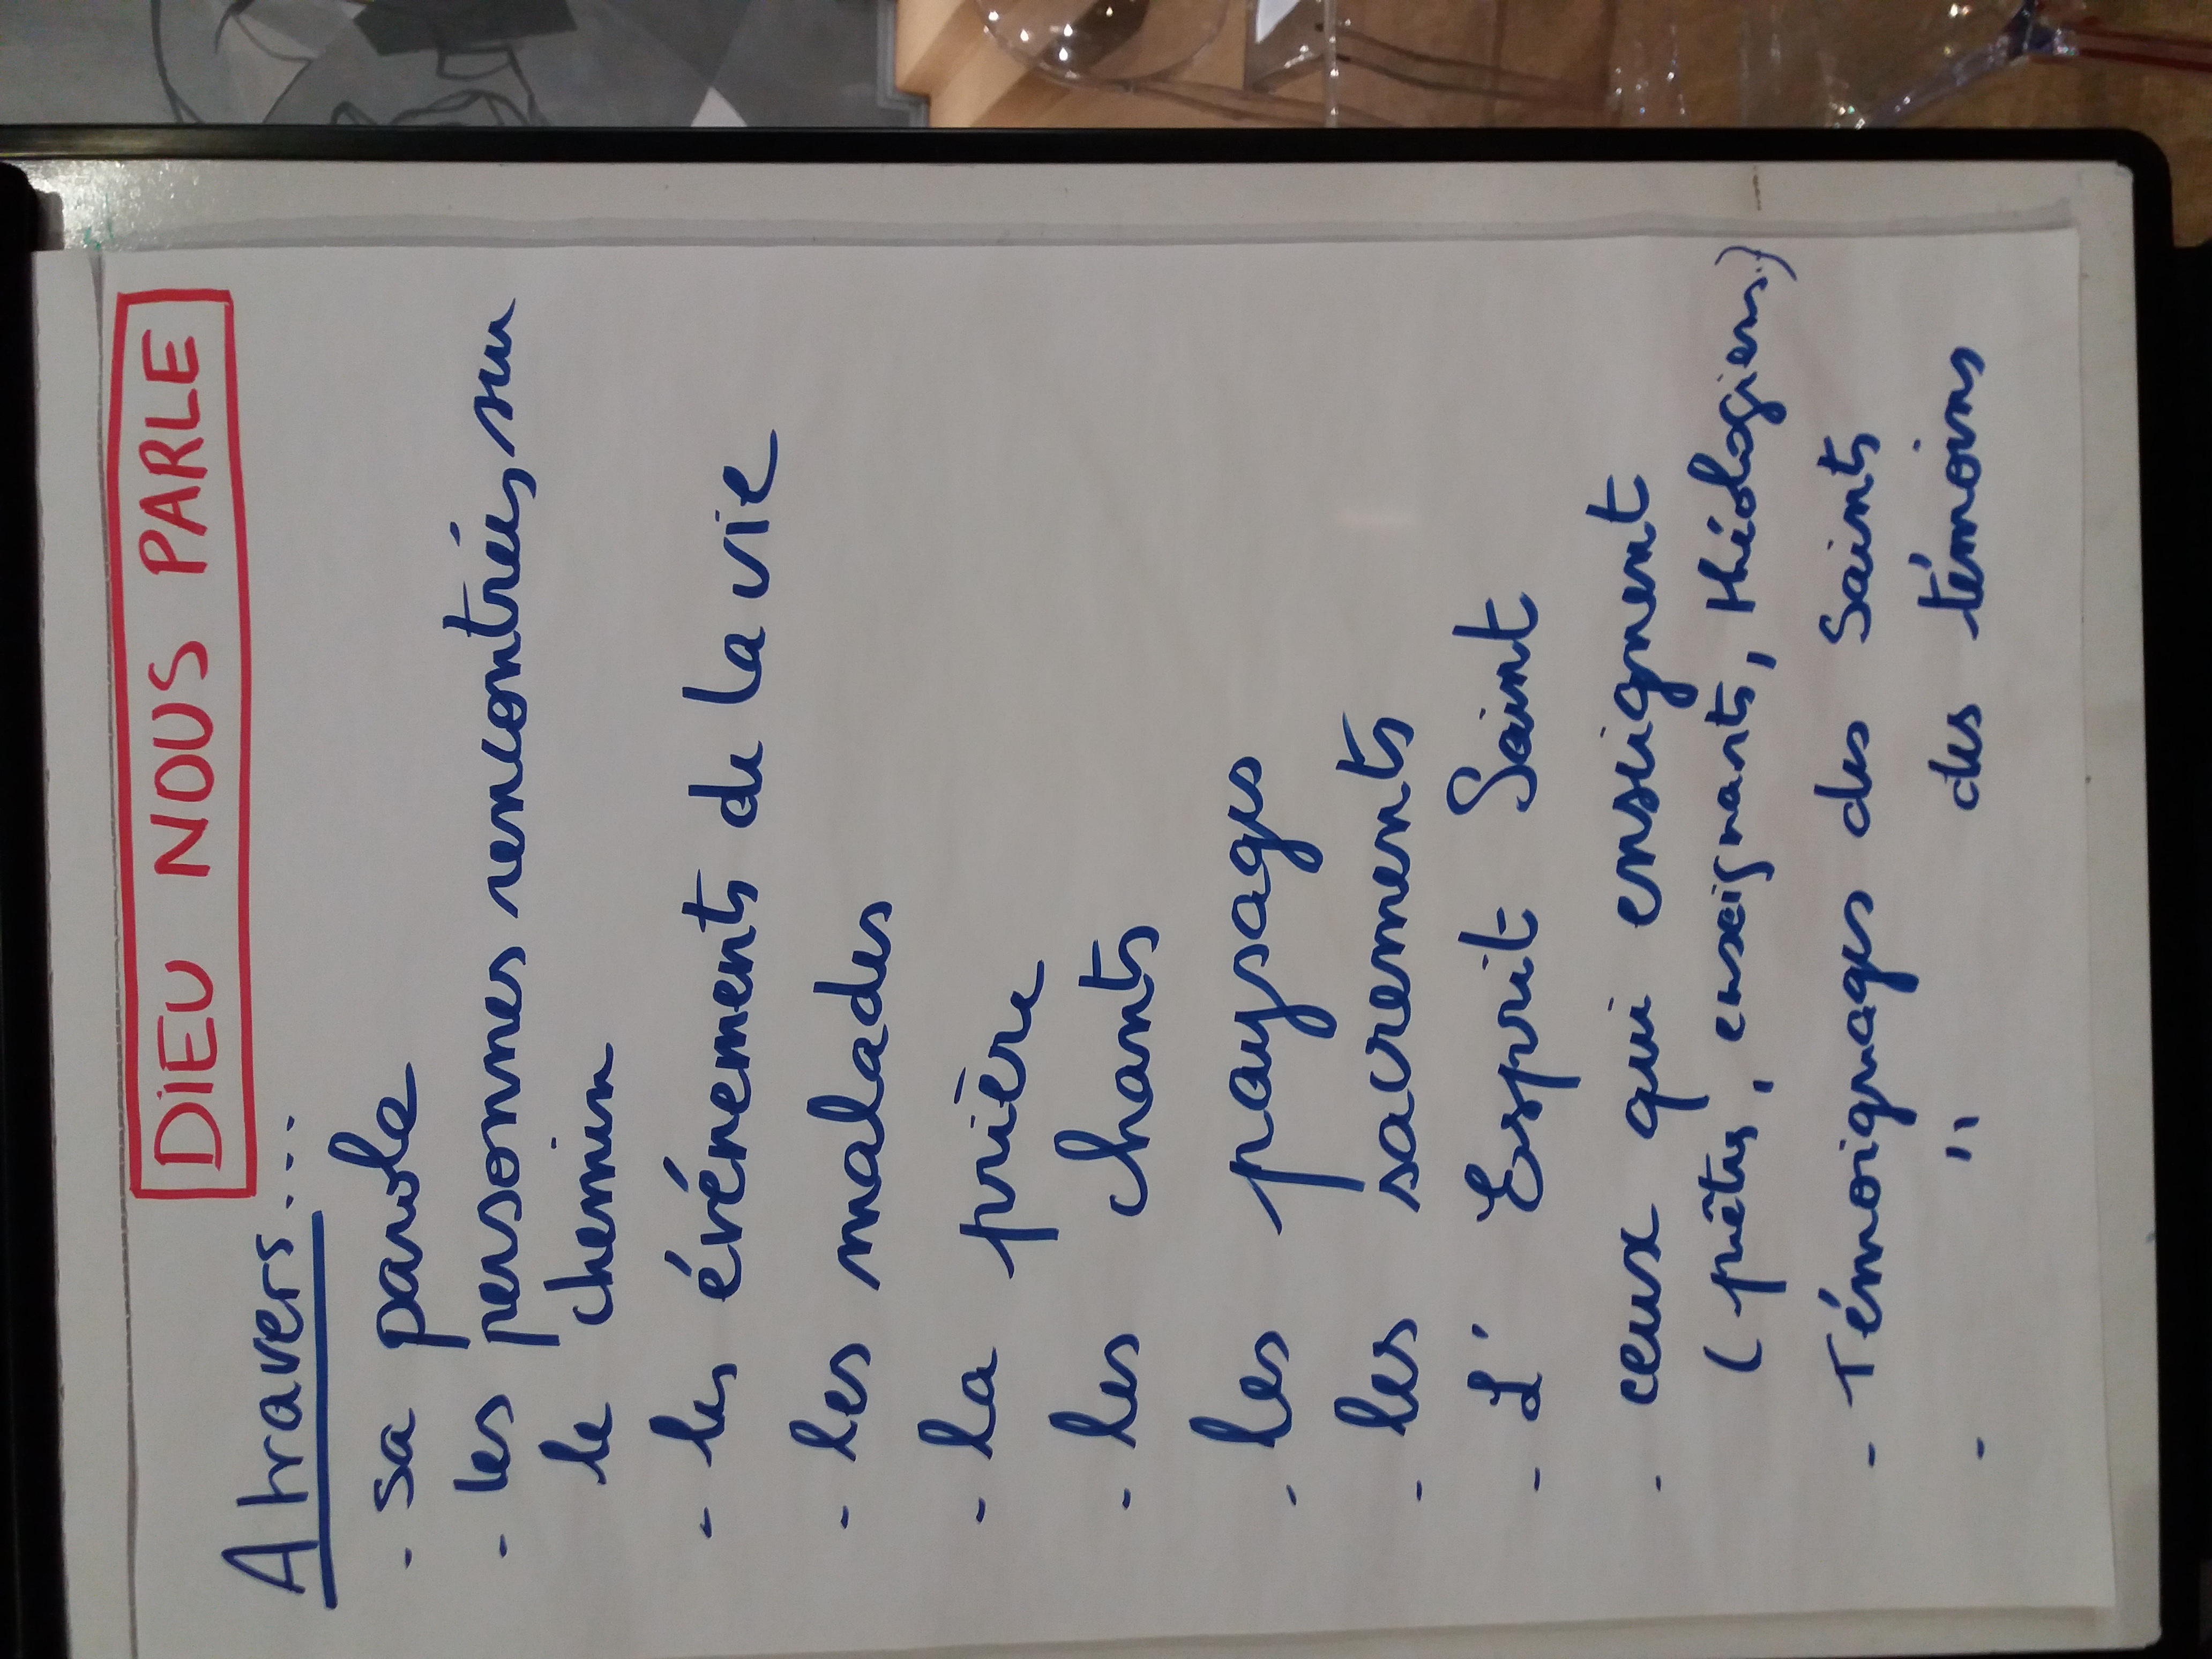 DIEU NOUS PARLE
A travers...
- sa parole
- les personnes rencontrées sur
le chemin
- les événements de la vie
- les malades
- la prière
- les chants
- les paysages
- les sacrements
- L' Esprit Saint
- ceux qui enseignent
(prêtres, enseignants, théologiens)
- Témoignages des Saints
- " des témoins